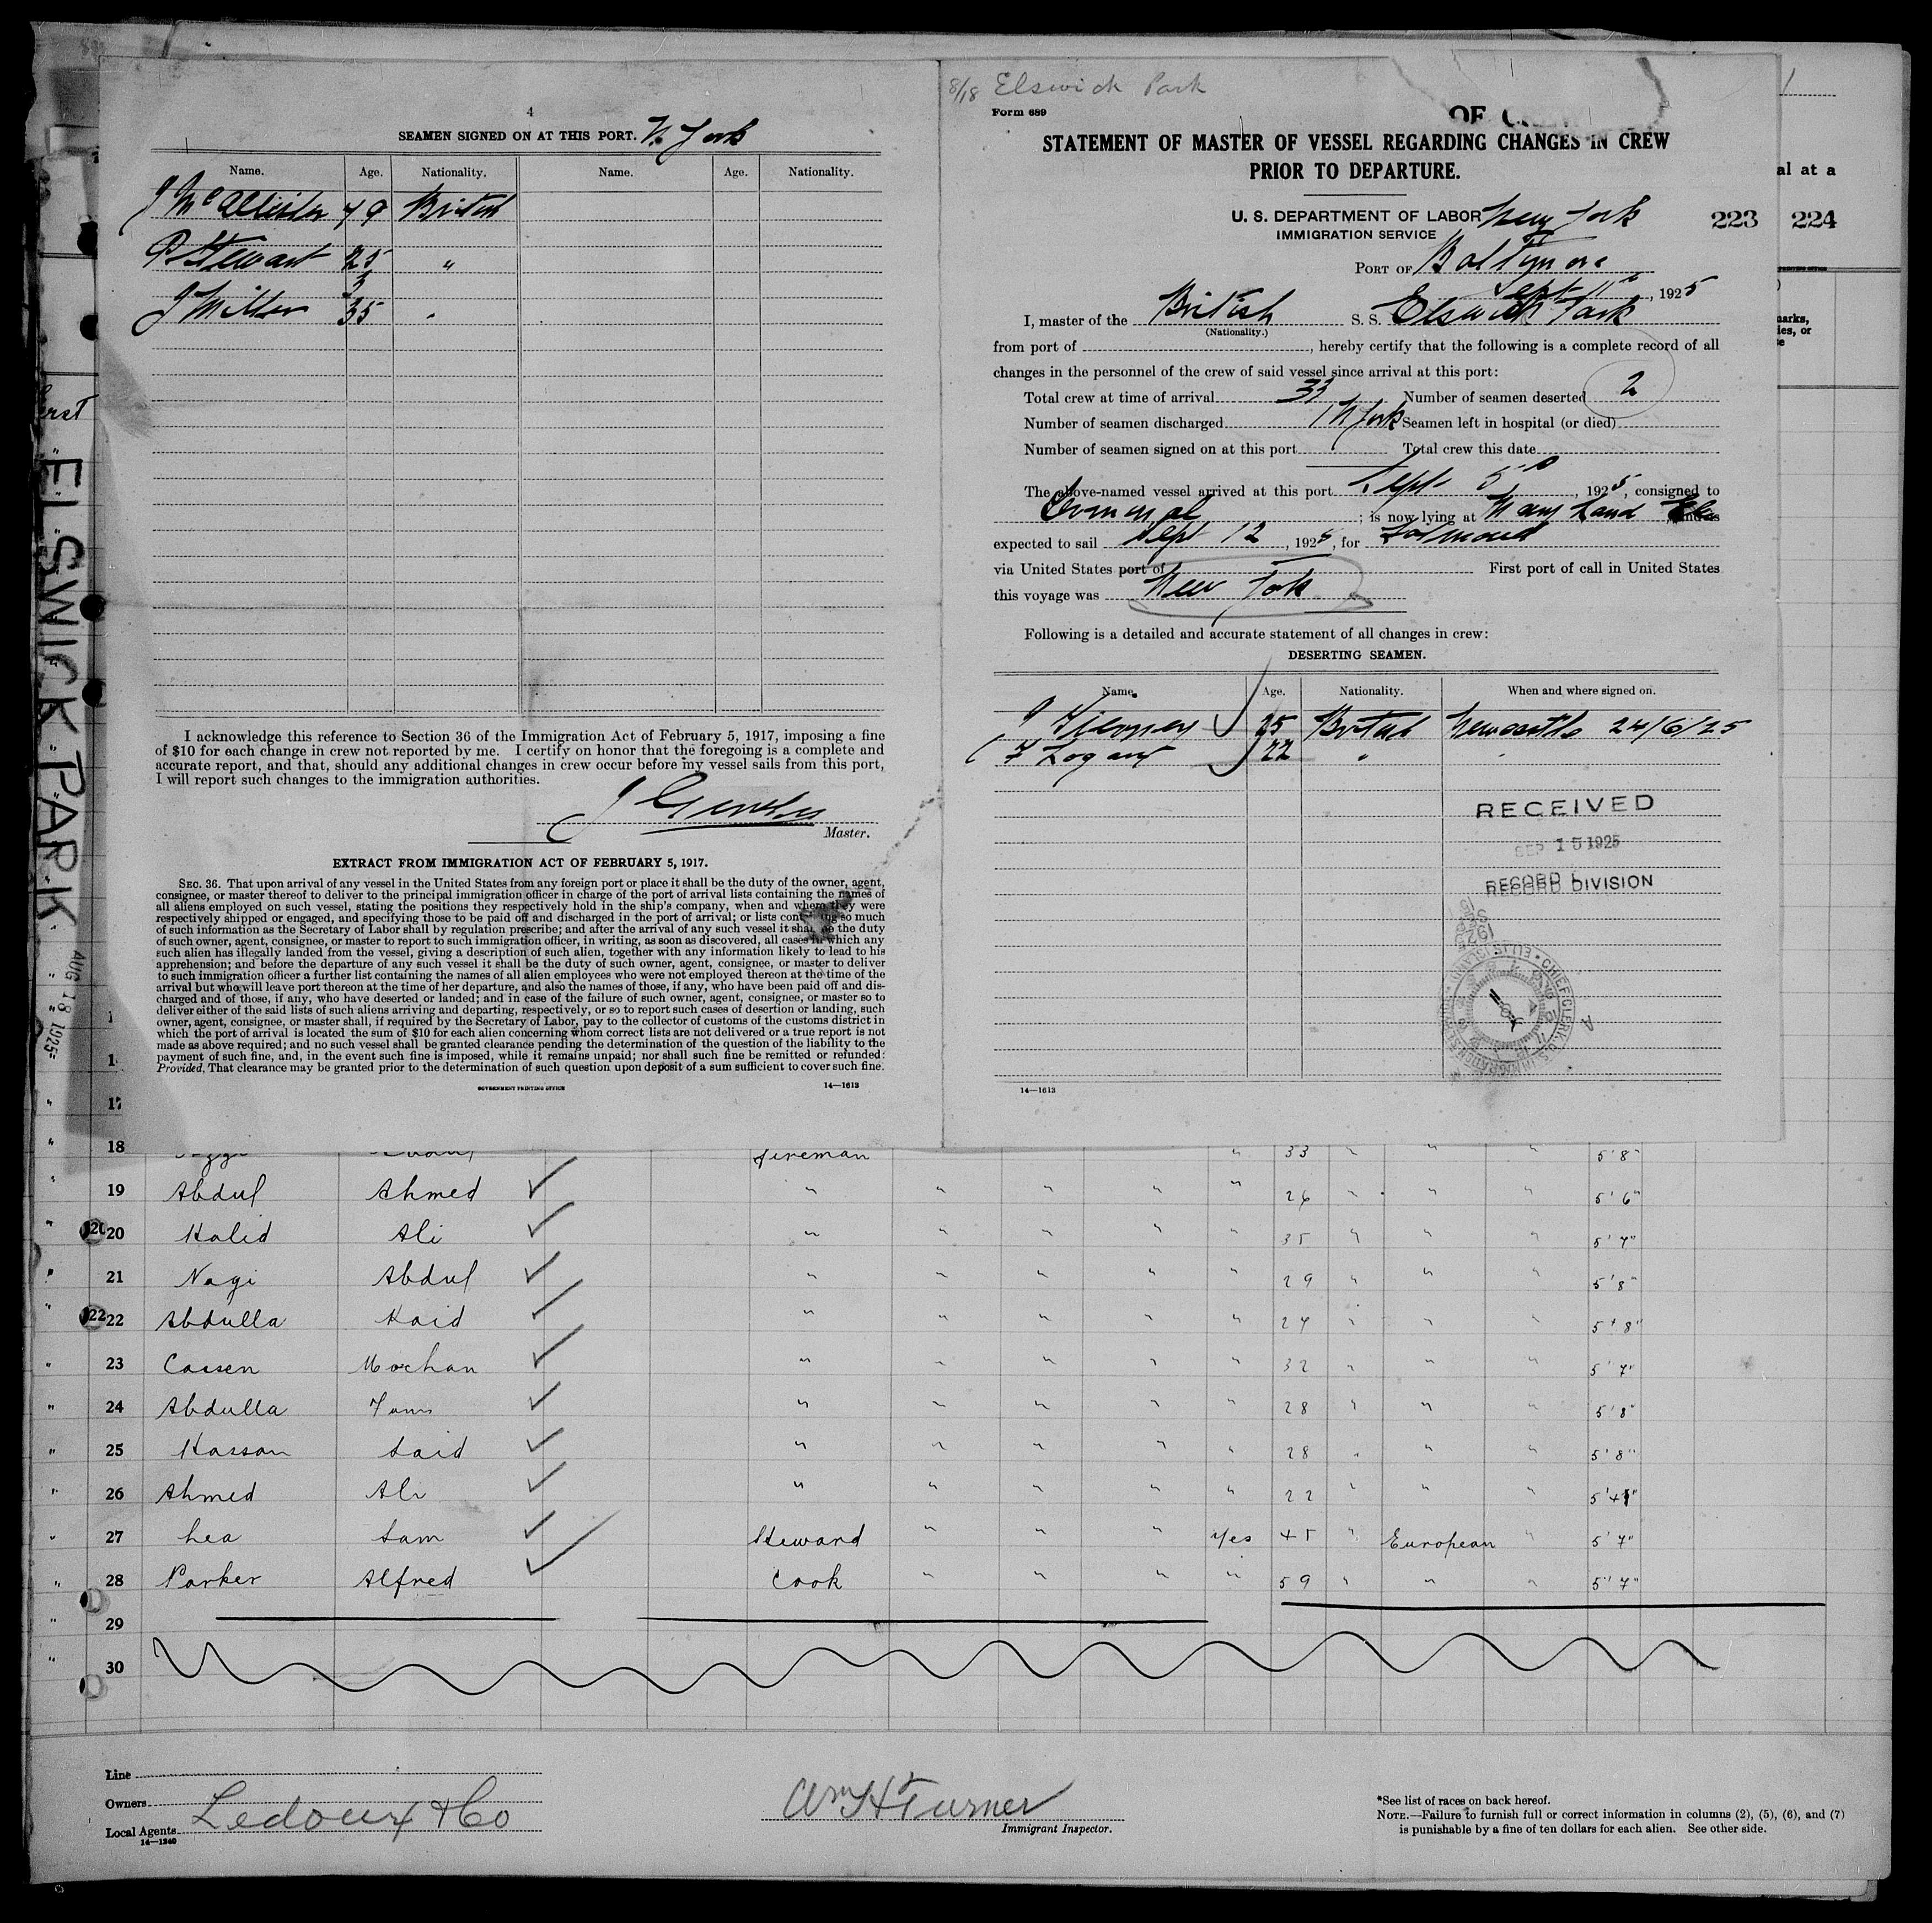 4
SEAMEN SIGNED ON AT THIS PORT. N. York
Name. Age. Nationality. Name. Age. Nationality.
J McAllister 49 British
P Stewart 25 "
3
J Miller 35 "
I acknowledge this reference to Section 36 of the Immigration Act of February 5, 1917, imposing a fine
of $10 for each change in crew not reported by me. I certify on honor that the foregoing is a complete and
accurate report, and that, should any additional changes in crew occur before my vessel sails from this port,
I will report such changes to the immigration authorities.
Master.
EXTRACT FROM IMMIGRATION ACT OF FEBRUARY 5, 1917.
SEC. 36. That upon arrival of any vessel in the United States from any foreign port or place it shall be the duty of the owner, agent,
consignee, or master thereof to deliver to the principal immigration officer in charge of the port of arrival lists containing the names of
all aliens employed on such vessel, stating the positions they respectively hold in the ship's company, when and where they were
respectively shipped or engaged, and specifying those to be paid off and discharged in the port of arrival; or lists containing so much
of such information as the Secretary of Labor shall by regulation prescribe; and after the arrival of any such vessel it shall be the duty
of such owner, agent, consignee, or master to report to such immigration officer, in writing, as soon as discovered, all cases in which any
such alien has illegally landed from the vessel, giving a description of such alien, together with any information likely to lead to his
apprehension; and before the departure of any such vessel it shall be the duty of such owner, agent, consignee, or master to deliver
to such immigration officer a further list containing the names of all alien employees who were not employed thereon at the time of the
arrival but who will leave port thereon at the time of her departure, and also the names of those, if any, who have been paid off and dis-
charged and of those, if any, who have deserted or landed; and in case of the failure of such owner, agent, consignee, or master so to
deliver either of the said lists of such aliens arriving and departing, respectively, or so to report such cases of desertion or landing, such
owner, agent, consignee, or master shall, if required by the Secretary of Labor, pay to the collector of customs of the customs district in
which the port of arrival is located the sum of $10 for each alien concerning whom correct lists are not delivered or a true report is not
made as above required; and no such vessel shall be granted clearance pending the determination of the question of the liability to the
payment of such fine, and, in the event such fine is imposed, while it remains unpaid; nor shall such fine be remitted or refunded:
Provided, That clearance may be granted prior to the determination of such question upon deposit of a sum sufficient to cover such fine.
GOVERNMENT PRINTING OFFICE 14—1613
8/18 Elswick Park
Form 689
OF
STATEMENT OF MASTER OF VESSEL REGARDING CHANGES IN CREW
PRIOR TO DEPARTURE.
U. S. DEPARTMENT OF LABOR New York
IMMIGRATION SERVICE
223 224
PORT OF Baltimore
Sept 11th, 1925
I, master of the British S. S. Elswick Park
(Nationality.)
from port of , hereby certify that the following is a complete record of all
changes in the personnel of the crew of said vessel since arrival at this port:
Total crew at time of arrival 33 Number of seamen deserted 2
Number of seamen discharged 1 N York Seamen left in hospital (or died)
Number of seamen signed on at this port Total crew this date
The above-named vessel arrived at this port Sept 5th, 1925, consigned to
; is now lying at Mary Land , and is
expected to sail Sept 12, 1925, for
via United States port of First port of call in United States
this voyage was New York
Following is a detailed and accurate statement of all changes in crew:
DESERTING SEAMEN.
Name. Age. Nationality. When and where signed on.
J 25 British Newcastle 24/6/25
F Logan 22 "
RECEIVED
SEP 15 1925
RECORD DIVISION
CHIEF CLERK, U.S. IMMIGRATION STATION ELLIS ISLAND
14—1613
al at a
marks,
ies, or
ELSWICK PARK
AUG 18 1925
17
18 fireman " 33 " " " 5'8"
19 Abdul Ahmed " " " " " 26 " " " 5'6"
20 Halid Ali " " " " " 35 " " " 5'7"
21 Nagi Abdul " " " " " 29 " " " 5'8"
22 Abdulla Kaid " " " " " 27 " " " 5'8"
23 Cassen Mochan " " " " " 32 " " " 5'7"
24 Abdulla " " " " " 28 " " " 5'8"
25 Hassan Said " " " " " 28 " " " 5'8"
26 Ahmed Ali " " " " " 22 " " "
27 Lea Sam Steward " " " Yes 45 " European " 5'7"
28 Parker Alfred Cook " " " " 59 " " " 5'7"
29
30
Line
Owners
Local Agents Ledoux & Co
14—1240
Wm H Turner
Immigrant Inspector.
*See list of races on back hereof.
NOTE.—Failure to furnish full or correct information in columns (2), (5), (6), and (7)
is punishable by a fine of ten dollars for each alien. See other side.